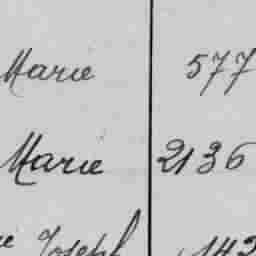 Marie 577
Marie 2136
Joseph 142